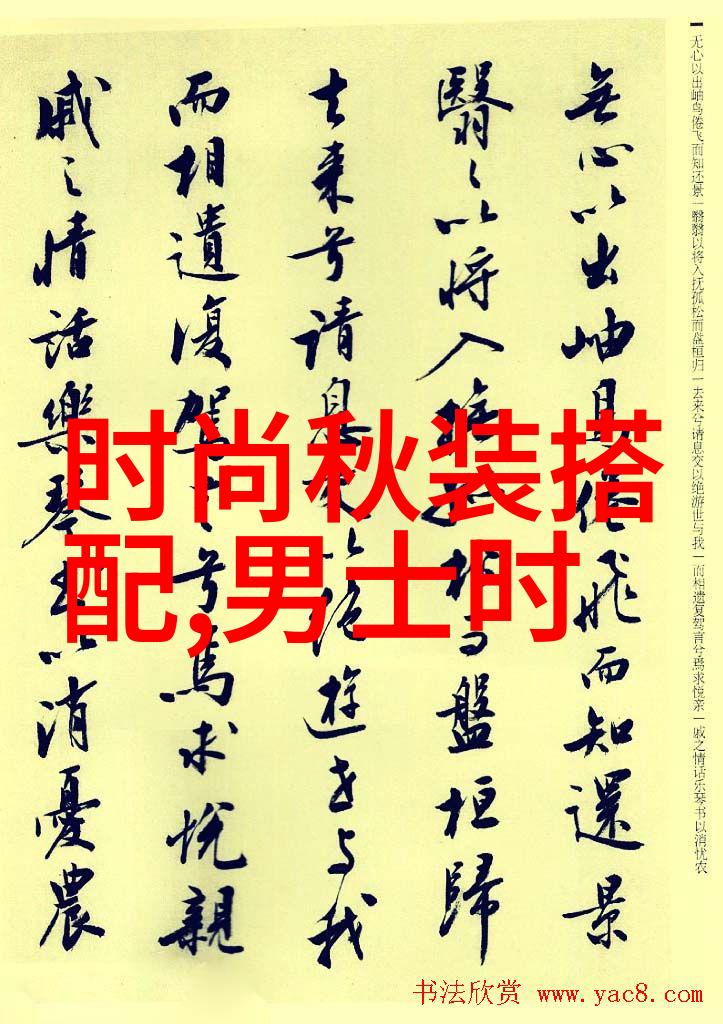 无心以出岫鸟倦飞而知还景一翳翳以将入抚孤松而盘桓归一去来兮请息交以绝游世与我一而相遗复驾言兮焉求悦亲一戚之情话乐琴书以消忧农
無心以出岫鳥倦飛而知還景
翳々以将入撫孤松而盤桓歸
去来兮請息交以絶遊世与我
而相遺復駕言兮焉求悦親
戚之情話樂琴書以消憂農
时尚秋装搭
配,男士时
书法欣赏 www.yac8.com